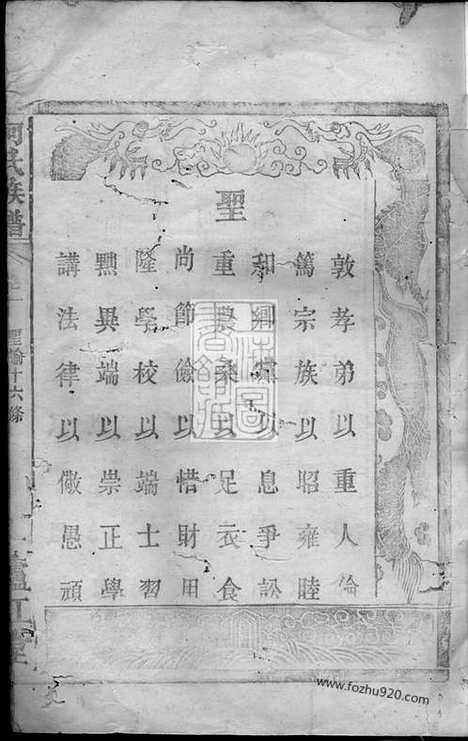 聖
敦孝弟以重人倫
篤宗族以昭雍睦
和鄉黨以息爭訟
重農桑以足衣食
尚節儉以惜財用
隆學校以端士習
黜異端以崇正學
講法律以儆愚頑
何氏族譜
聖諭十六條
廬江堂
www.fozhu920.com